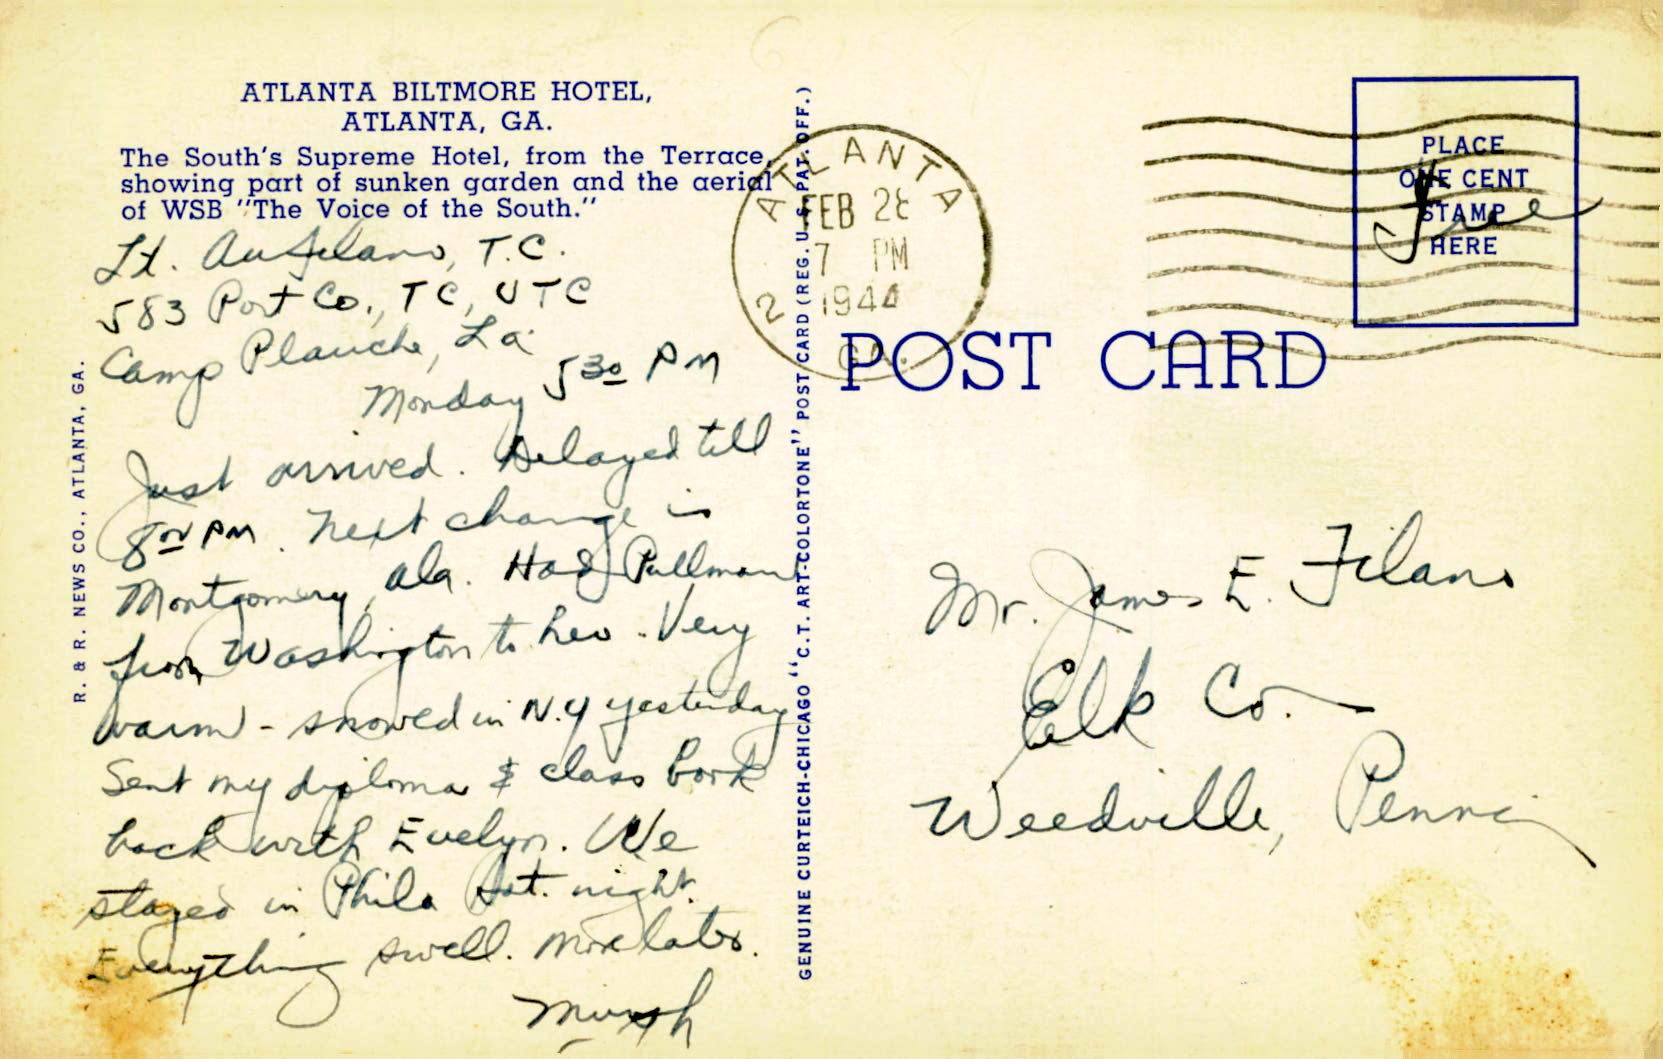 ATLANTA BILTMORE HOTEL,
ATLANTA, GA.
The South's Supreme Hotel, from the Terrace,
showing part of sunken garden and the aerial
of WSB "The Voice of the South."
Lt. A. Filano, T.C.
583 Port Co., TC, UTC
Camp Plauche, La
Monday 5 30 PM
Just arrived. Delayed till
8 00 PM. Next change in
Montgomery, Ala. Had Pullman
from Washington to here. Very
warm - snowed in N.Y yesterday
Sent my diploma & class book
back with Evelyn. We
stayed in Phila Sat. night.
Everything swell. More later.
R. & R. NEWS CO., ATLANTA, GA.
GENUINE CURTEICH-CHICAGO "C.T. ART-COLORTONE" POST CARD (REG. U.S. PAT. OFF.)
ATLANTA
FEB 28
7 PM
1944
2
GA.
PLACE
ONE CENT
STAMP
HERE
Free
POST CARD
Mr. James E. Filano
Elk Co.
Weedville, Penna